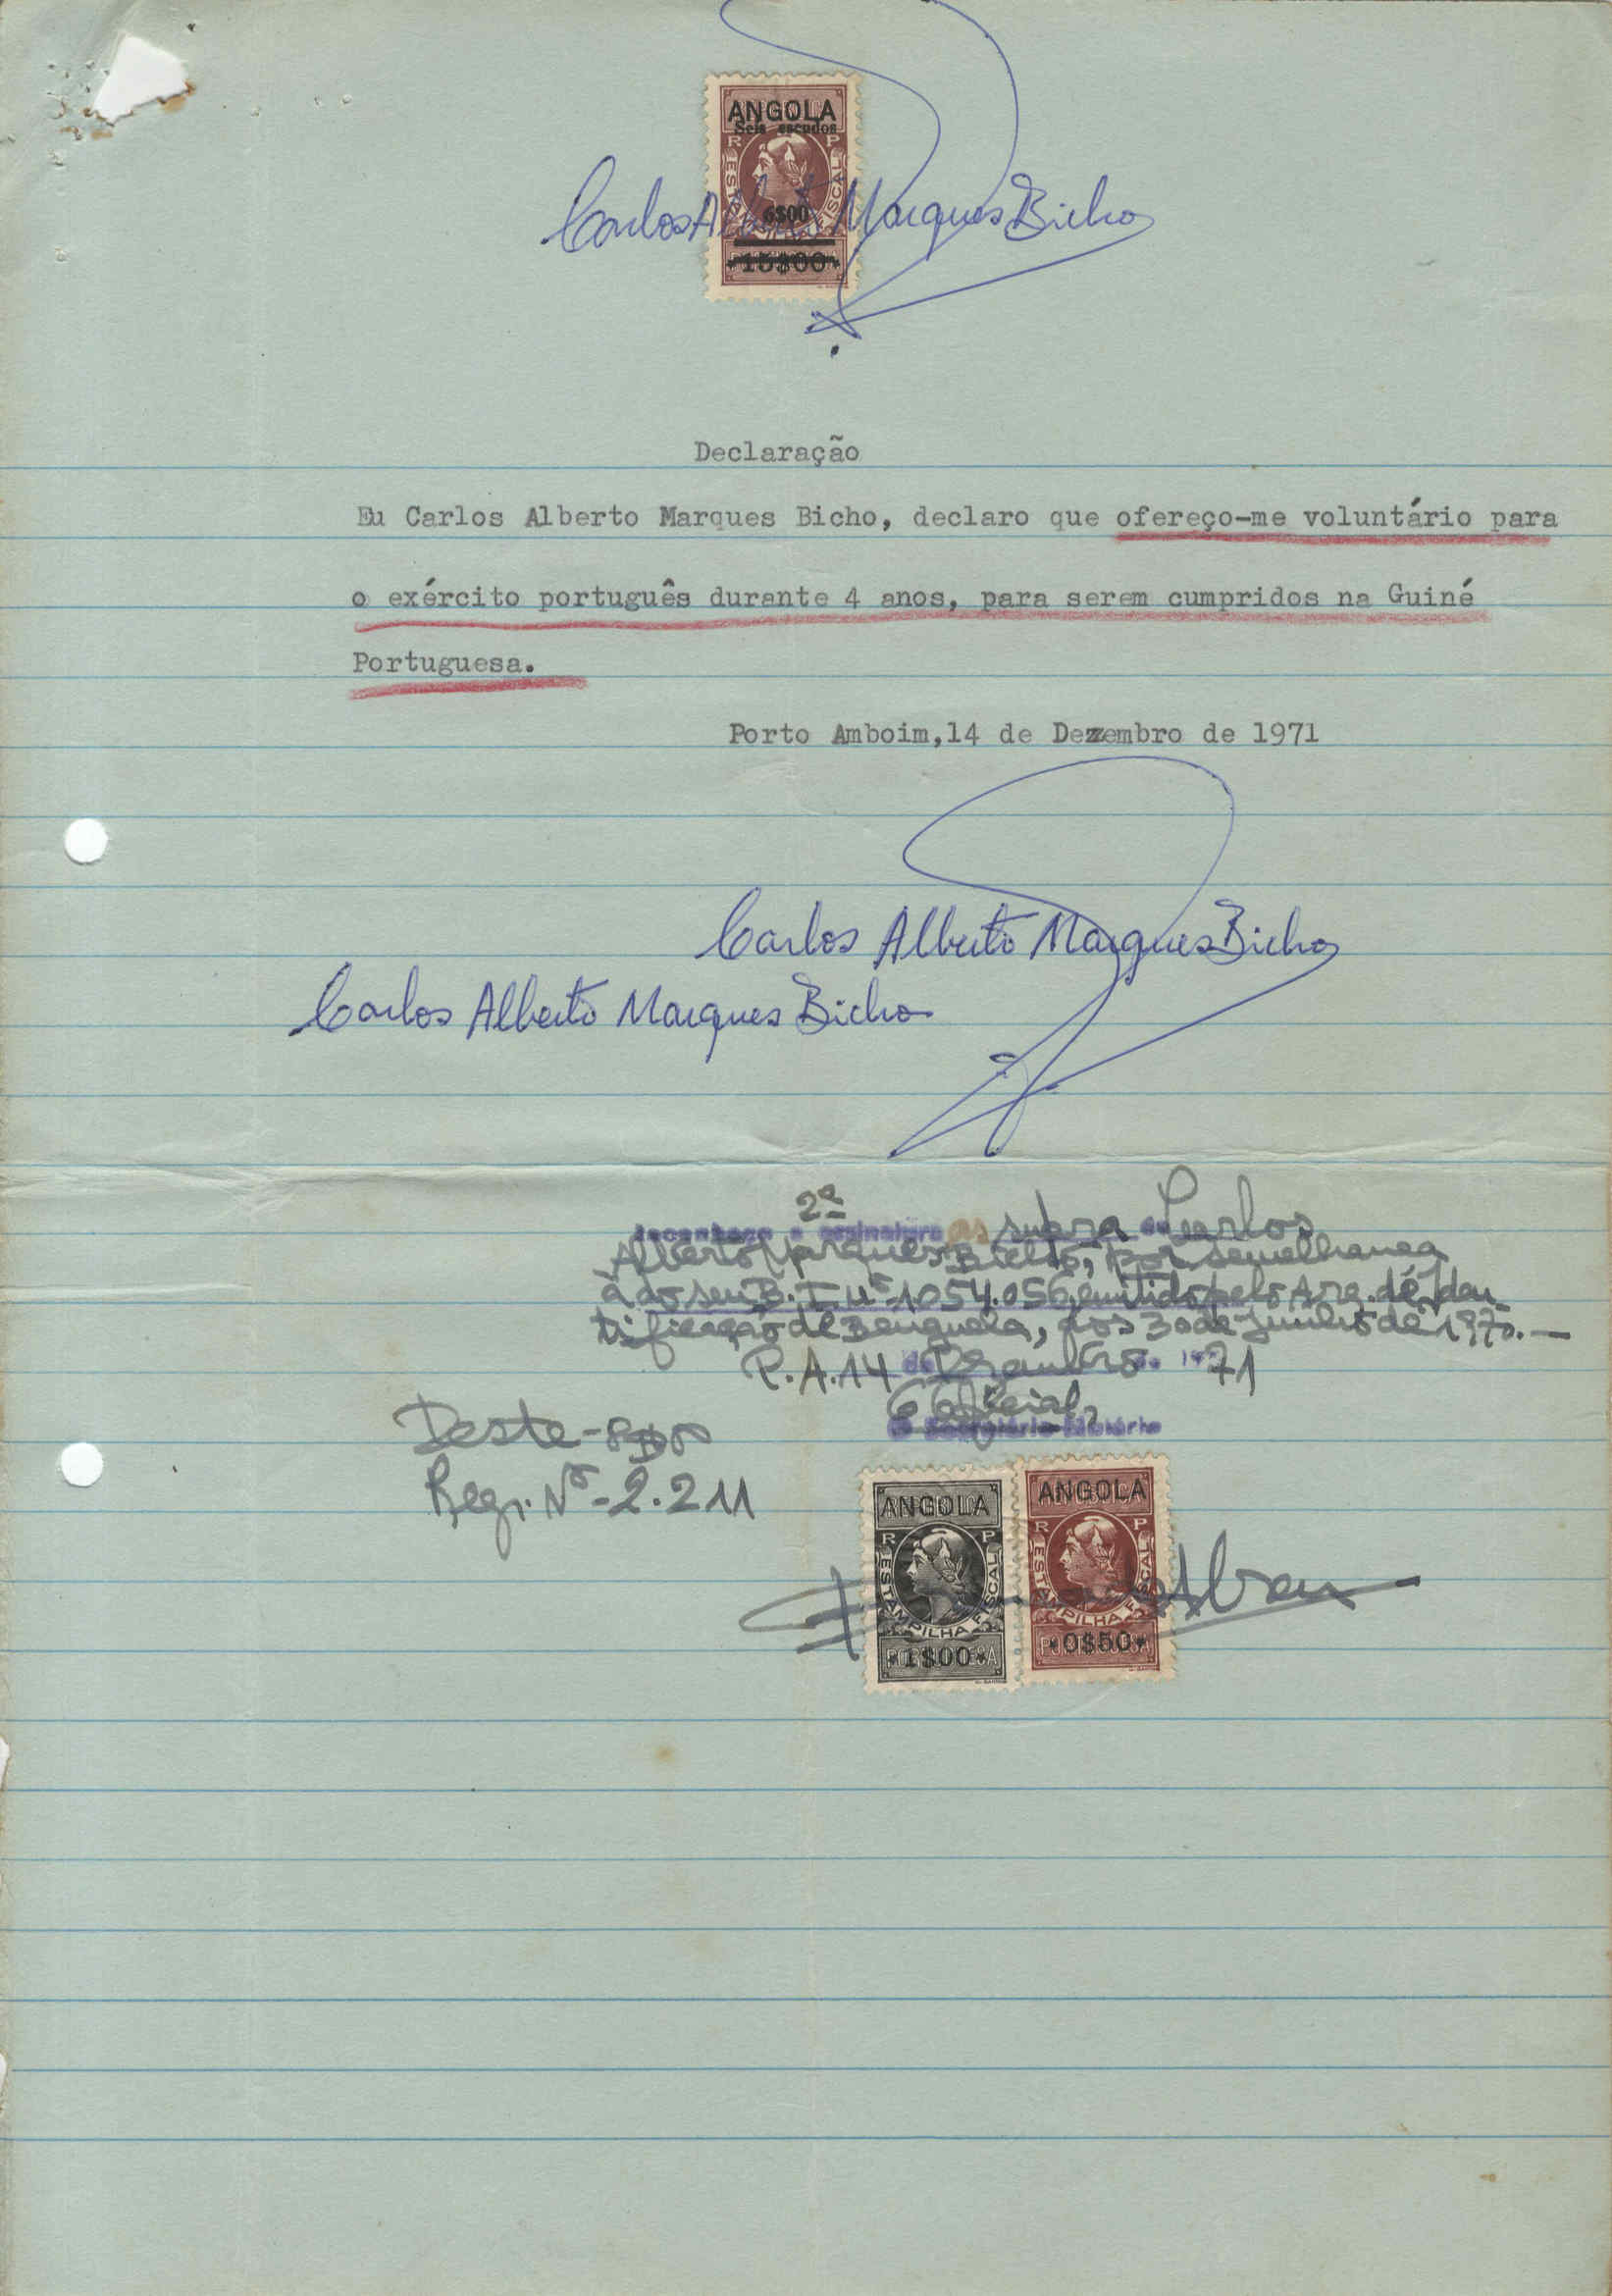 ANGOLA
Seis escudos
R P
ESTAMPILHA FISCAL
6$00
*15$00*
Carlos Alberto Marques Bicho
Declaração
Eu Carlos Alberto Marques Bicho, declaro que ofereço-me voluntário para
o exército português durante 4 anos, para serem cumpridos na Guiné
Portuguesa.
Porto Amboim,14 de Dezembro de 1971
Carlos Alberto Marques Bicho
Carlos Alberto Marques Bicho
2ª
Reconheço a assinatura supra de Carlos
Alberto Marques Bicho, por semelhança
à do seu B.I nº 1054.056, emitido pelo Arq. de Iden
tificação de Benguela, aos 30 de Junho de 1970.—
P.A. 14 de Dezembro de 1971
O Oficial,
O Secretário Notário
Deste-
Reg. Nº-2.211
ANGOLA
R P
ESTAMPILHA FISCAL
*1$00*
ANGOLA
R P
ESTAMPILHA FISCAL
*0$50*